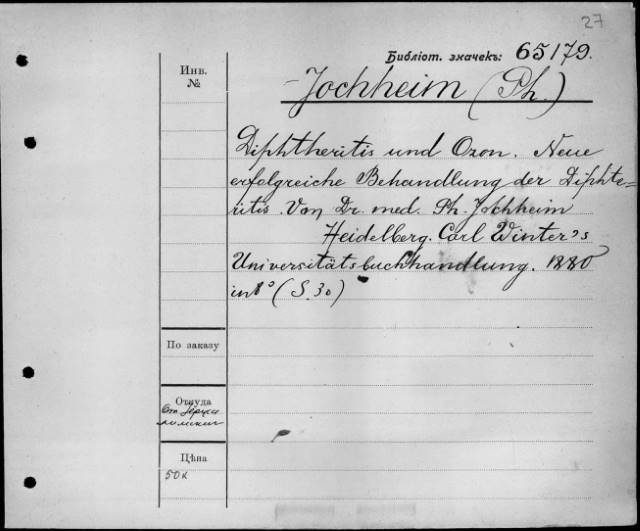 27
Библіот. значекъ: 65179.
Инв.
№
Jochheim (Ph.)
Diphtheritis und Ozon. Neue
erfolgreiche Behandlung der Diphte-
ritis. Von Dr. med. Ph. Jochheim
Heidelberg. Carl Winter's
Universitätsbuchhandlung. 1880
in 8° (S. 30)
По заказу
Откуда
Цѣна
50к